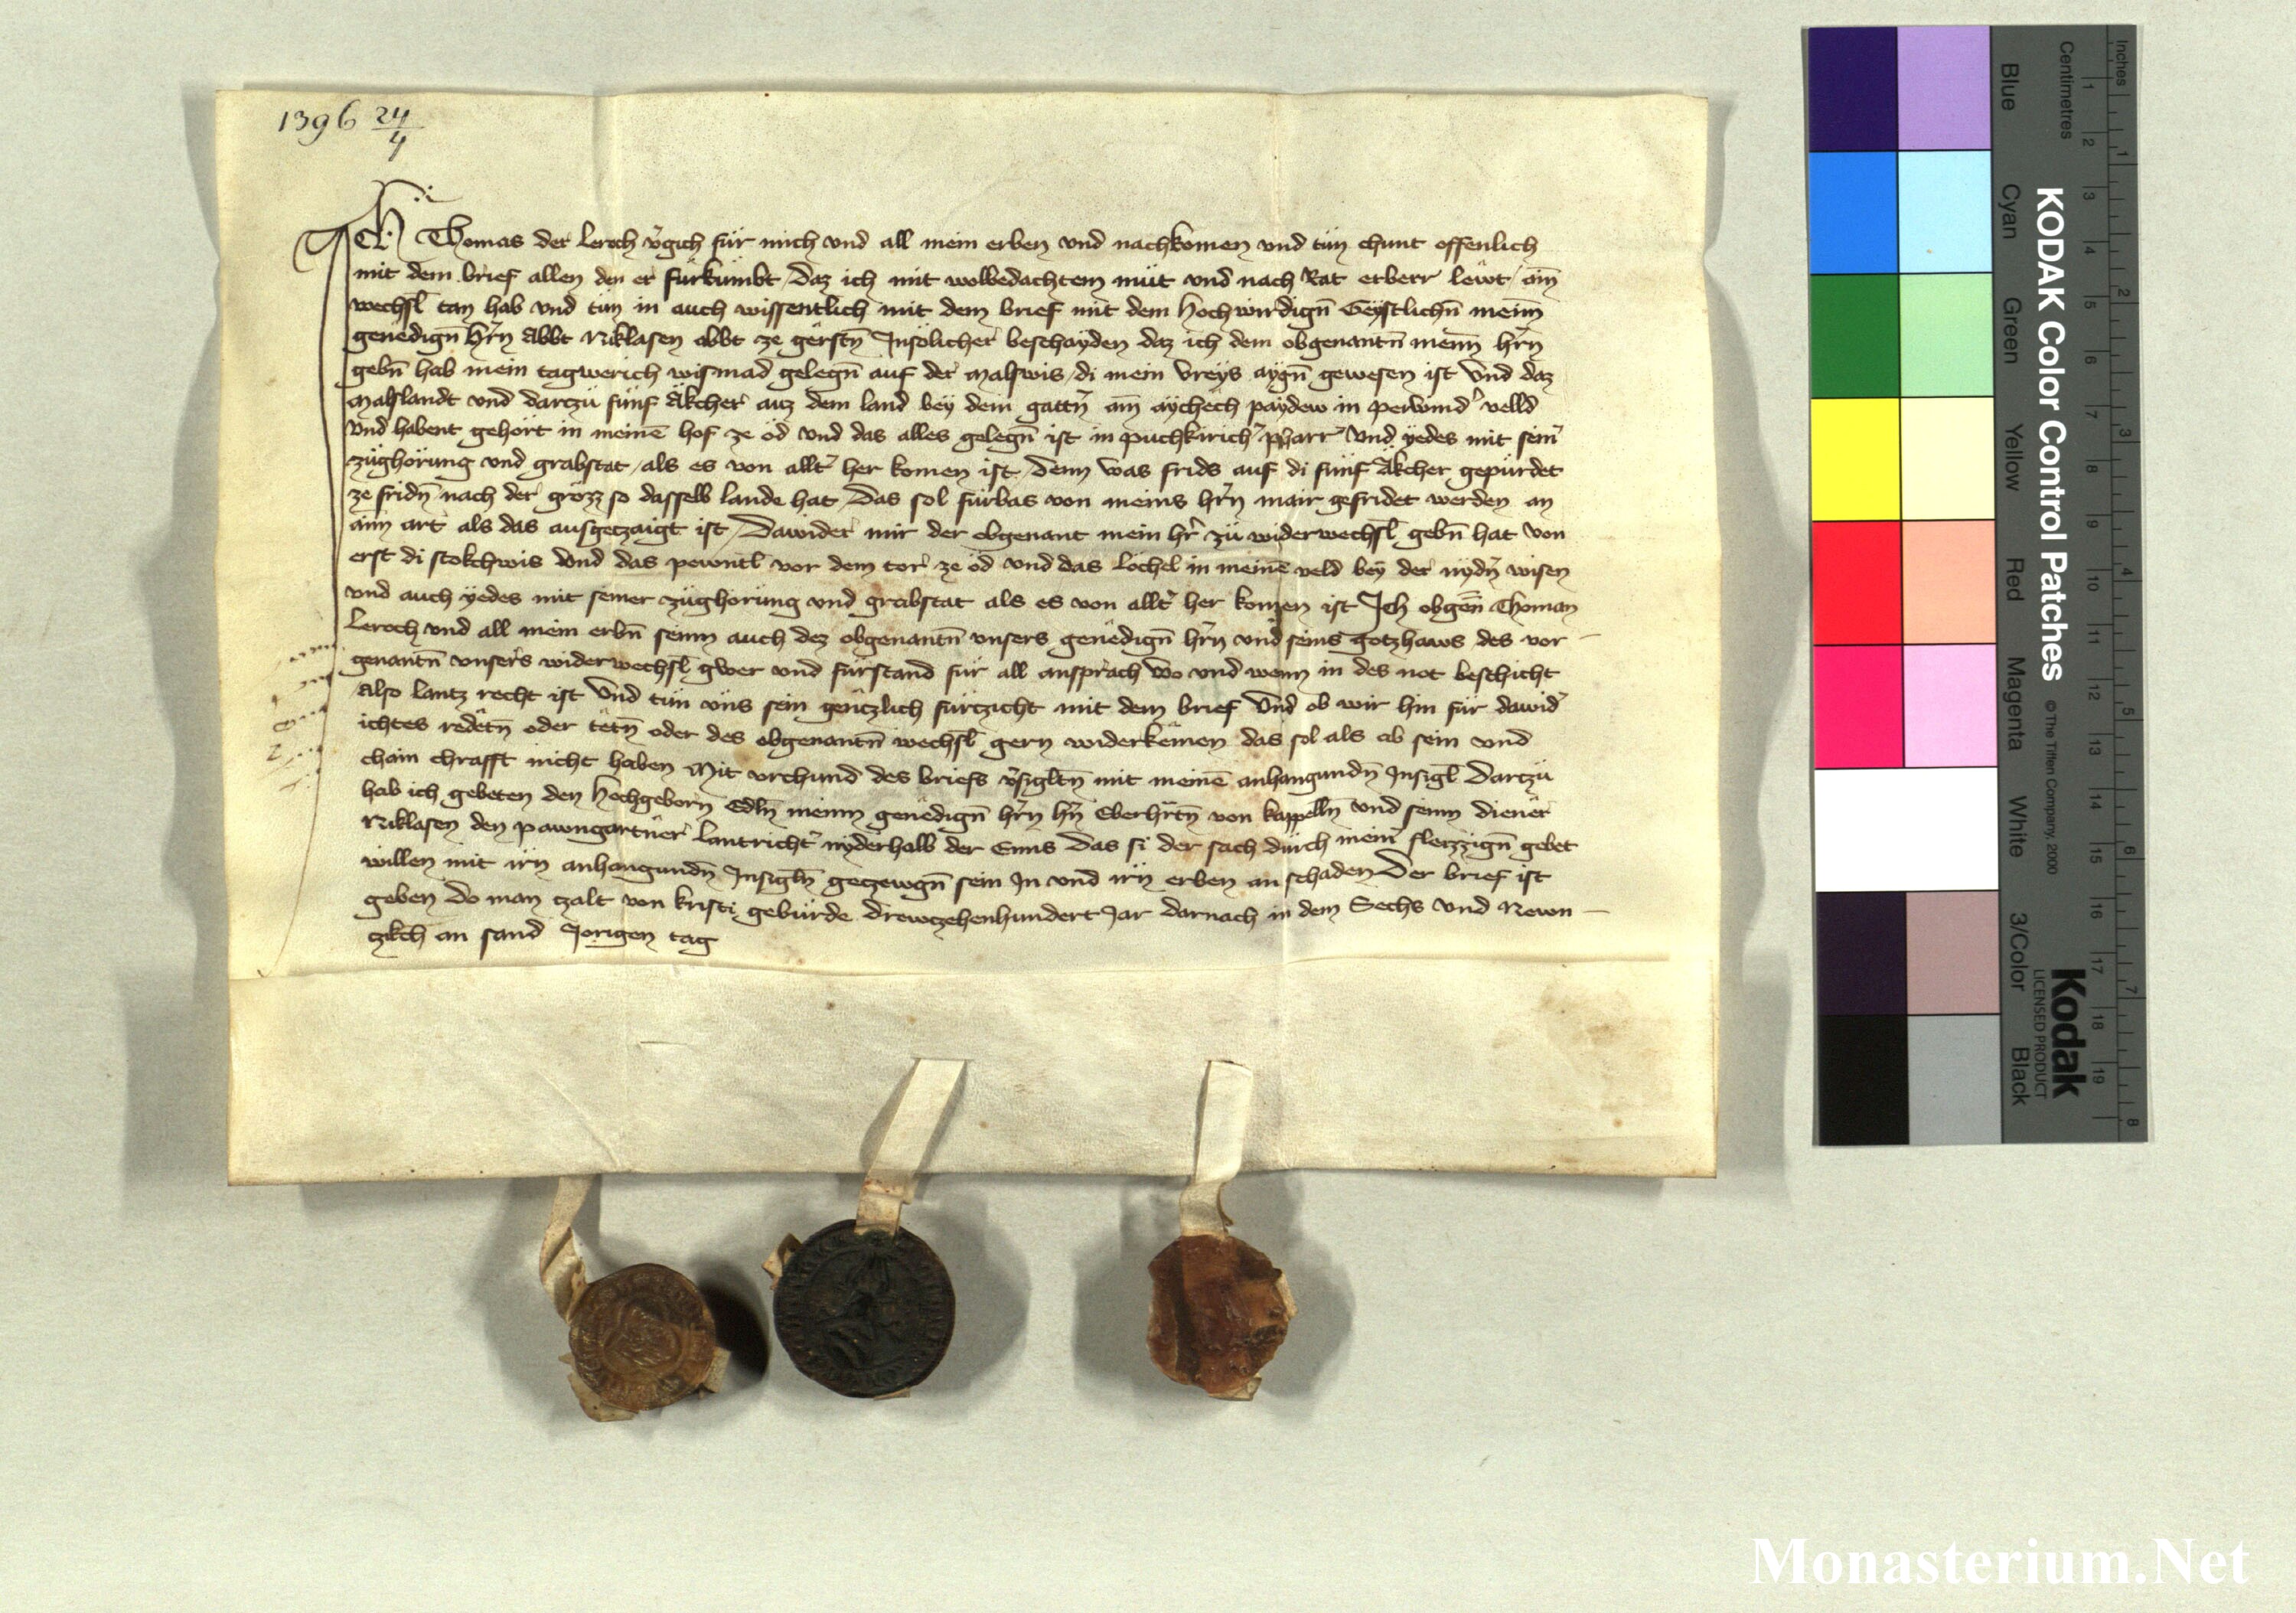 1396 24/4
ICh Thomas der Leroch v̄gich für mich vnd all mein erben vnd nachkomen vnd tün chunt offenlich
mit dem brief allen den er fürkümbt / Daz ich mit wolbedachtem müt vnd nach Rat erberr lewt / ain̄
wechsl̄ tan hab vnd tün in auch wissentlich mit dem brief mit dem Hochwirdign̄ Geystlichn̄ meinn̄
genëdign̄ hr̄n Abbt Niklasen abbt ze gërstn̄ Insölicher beschayden daz ich dem obgenantn̄ meinn̄ hr̄n
gebn̄ hab mein tagwerich wismad gelegn̄ auf der Malswis / di mein vreys aygn̄ gewesen ist Vnd daz
Malslandt vnd dartzü fünf Äkcher auz dem land bëy dem gattn̄ am aychëch paydew in perwind̄ velld
Vnd habent gehört in meinē hof ze öd vnd das alles gelegn̄ ist in puchkirich̄ pharr Vnd yedes mit sein̄
züghörung vnd grabstat / als es von allt̄ her komen ist / Denn was frids auf di fünf Äkcher gepürdet
ze fridn̄ nach der grözz so dasselb lande hat / Das sol fürbas von meins hr̄n mair gefridet werden an
aim art als das ausgetzaigt ist / Dawider mir der obgenant mein hr̄ zü widerwechsl̄ gebn̄ hat von
erst di stokchwis Vnd das pewntl̄ vor dem tor ze öd vnd das löchel in meinē veld bëy der nydn̄ wisen
vnd auch yedes mit seiner züghörung vnd grabstat als es von allt̄ her komen ist Ich obgen̄ Thoman
Leroch vnd all mein erbn̄ seinn auch dez obgenantn̄ vnsers genëdign̄ hr̄n vnd seins gotzhaws des vor –
genantn̄ vnsers widerwechsl̄ gwer vnd fürstand für all ansprach wo vnd wenn in des not beschicht
Also lantz recht ist Vnd tün vns sein gëntzlich fürtzicht mit dem brief Vnd ob wir hin für dawid̄
ichtes redëtn̄ oder tëtn̄ oder des obgenantn̄ wechsl̄ gern widerkëmen das sol als ab sein vnd
chain chrafft nicht haben Mit vrchund des briefs v̄sigltn̄ mit meinē anhangundn̄ Insigl̄ Dartzü
hab ich gebeten den Hochgeborn̄ Edln̄ meinn genëdign̄ hr̄n hn̄ Eberhr̄tn̄ von kappelln̄ vnd seinn diener
Niklasen den pawngartner Lantricht̄ nyderhalb der Enns Das si der sach dürch mein̄ fleizzign̄ gebet
willen mit irn̄ anhangundn̄ Insigln̄ getzewgn̄ sein In vnd irn̄ erben an schaden Der brief ist
geben do man tzalt von kristi gebürde Drewtzehenhundert Jar darnach in dem Sechs vnd Newn –
tzkch an sand Jorigen tag
KODAK Color Control Patches
© The Tiffen Company, 2000
Kodak
LICENSED PRODUCT
Blue Cyan Green Yellow Red Magenta White 3/Color Black
Inches 1 2 3 4 5 6 7 8
Centimetres 1 2 3 4 5 6 7 8 9 10 11 12 13 14 15 16 17 18 19
Monasterium.Net